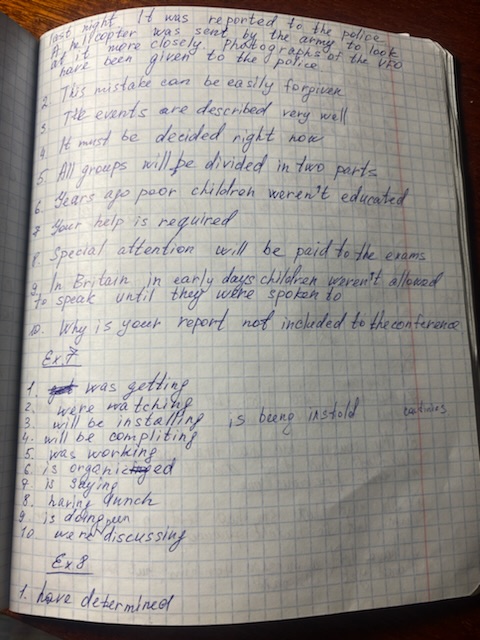 last night. It was reported to the police
A helicopter was sent by the army to look
at it more closely. Photographs of the UFO
have been given to the police.
2. This mistake can be easily forgiven
3. The events are described very well
4. It must be decided right now
5. All groups will be divided in two parts
6. Years ago poor children weren't educated
7. Your help is required
8. Special attention will be paid to the exams
9. In Britain in early days children weren't allowed
to speak until they were spoken to
10. Why is your report not included to the conference
Ex. 7
1. was getting
2. were watching
3. will be installing is being instold
4. will be compliting
5. was working
6. is organized
7. is saying
8. having lunch
9. is doing
10. were discussing
Ex 8
1. have determined